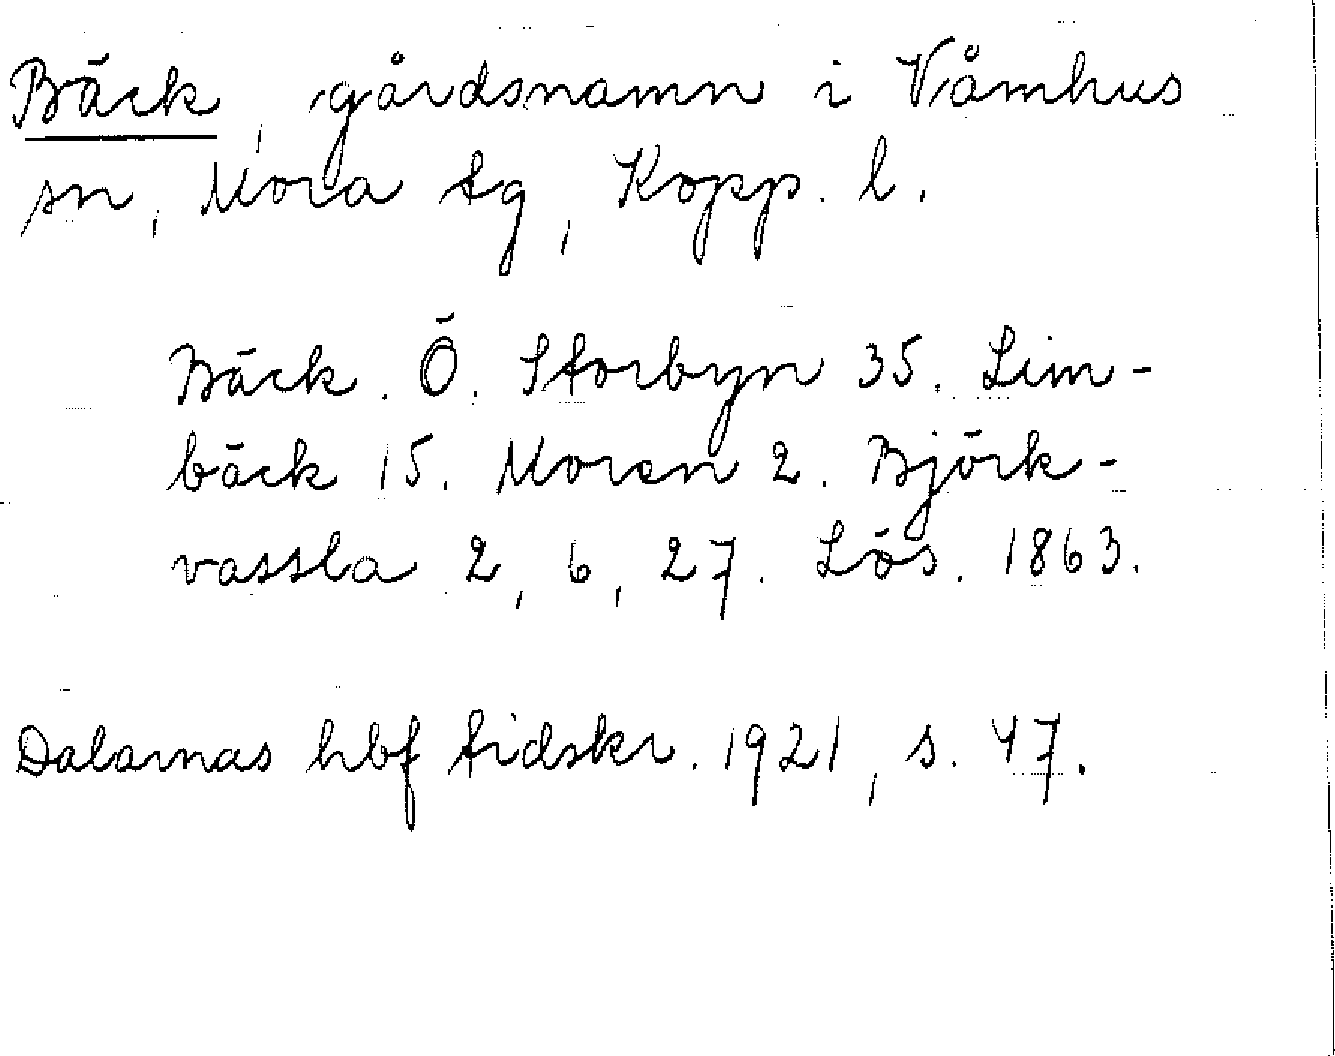 Bäck, gårdsnamn i Våmhus
sn, Mora tg, Kopp. l.
Bäck. Ö. Storbyn 35. Lim-
bäck 15. Moren 2. Björk-
vassla 2, 6, 27. Lös. 1863.
Dalarnas hbf tidskr. 1921, s. 47.